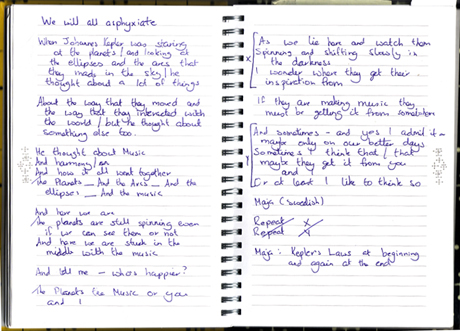 We will all asphyxiate
When Johannes Kepler was staring
at the planets / and looking at
the ellipses and the arcs that
they made in the sky / he
thought about a lot of things
About the way that they moved and
the way that they interacted with
the world / but he thought about
something else too.
He thought about Music
And harmony /
And how it all went together
The Planets _ And the Arcs _ And the
ellipses _ And the music
And here we are
The planets are still spinning even
if we can see them or not
And here we are stuck in the
middle with the music
And tell me - who's happier?
The Planets the Music or you
and I
As we lie here and watch them
Spinning and shifting slowly in
the darkness
I wonder where they get their
inspiration from
If they are making music they
must be getting it from somewhere
And sometimes - and yes I admit it
maybe only on our better days
Sometimes I think that / that
maybe they get it from you
and I
Or at least I like to think so
Maja (Swedish)
Repeat X
Repeat
Maja : Kepler's Laws at beginning
and again at the end